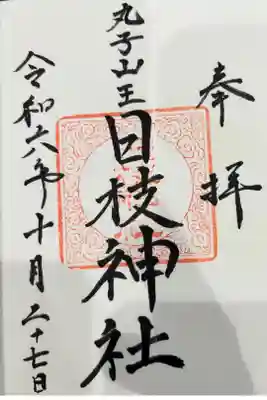 奉拝
丸子山王
日枝神社
令和六年十月二十七日